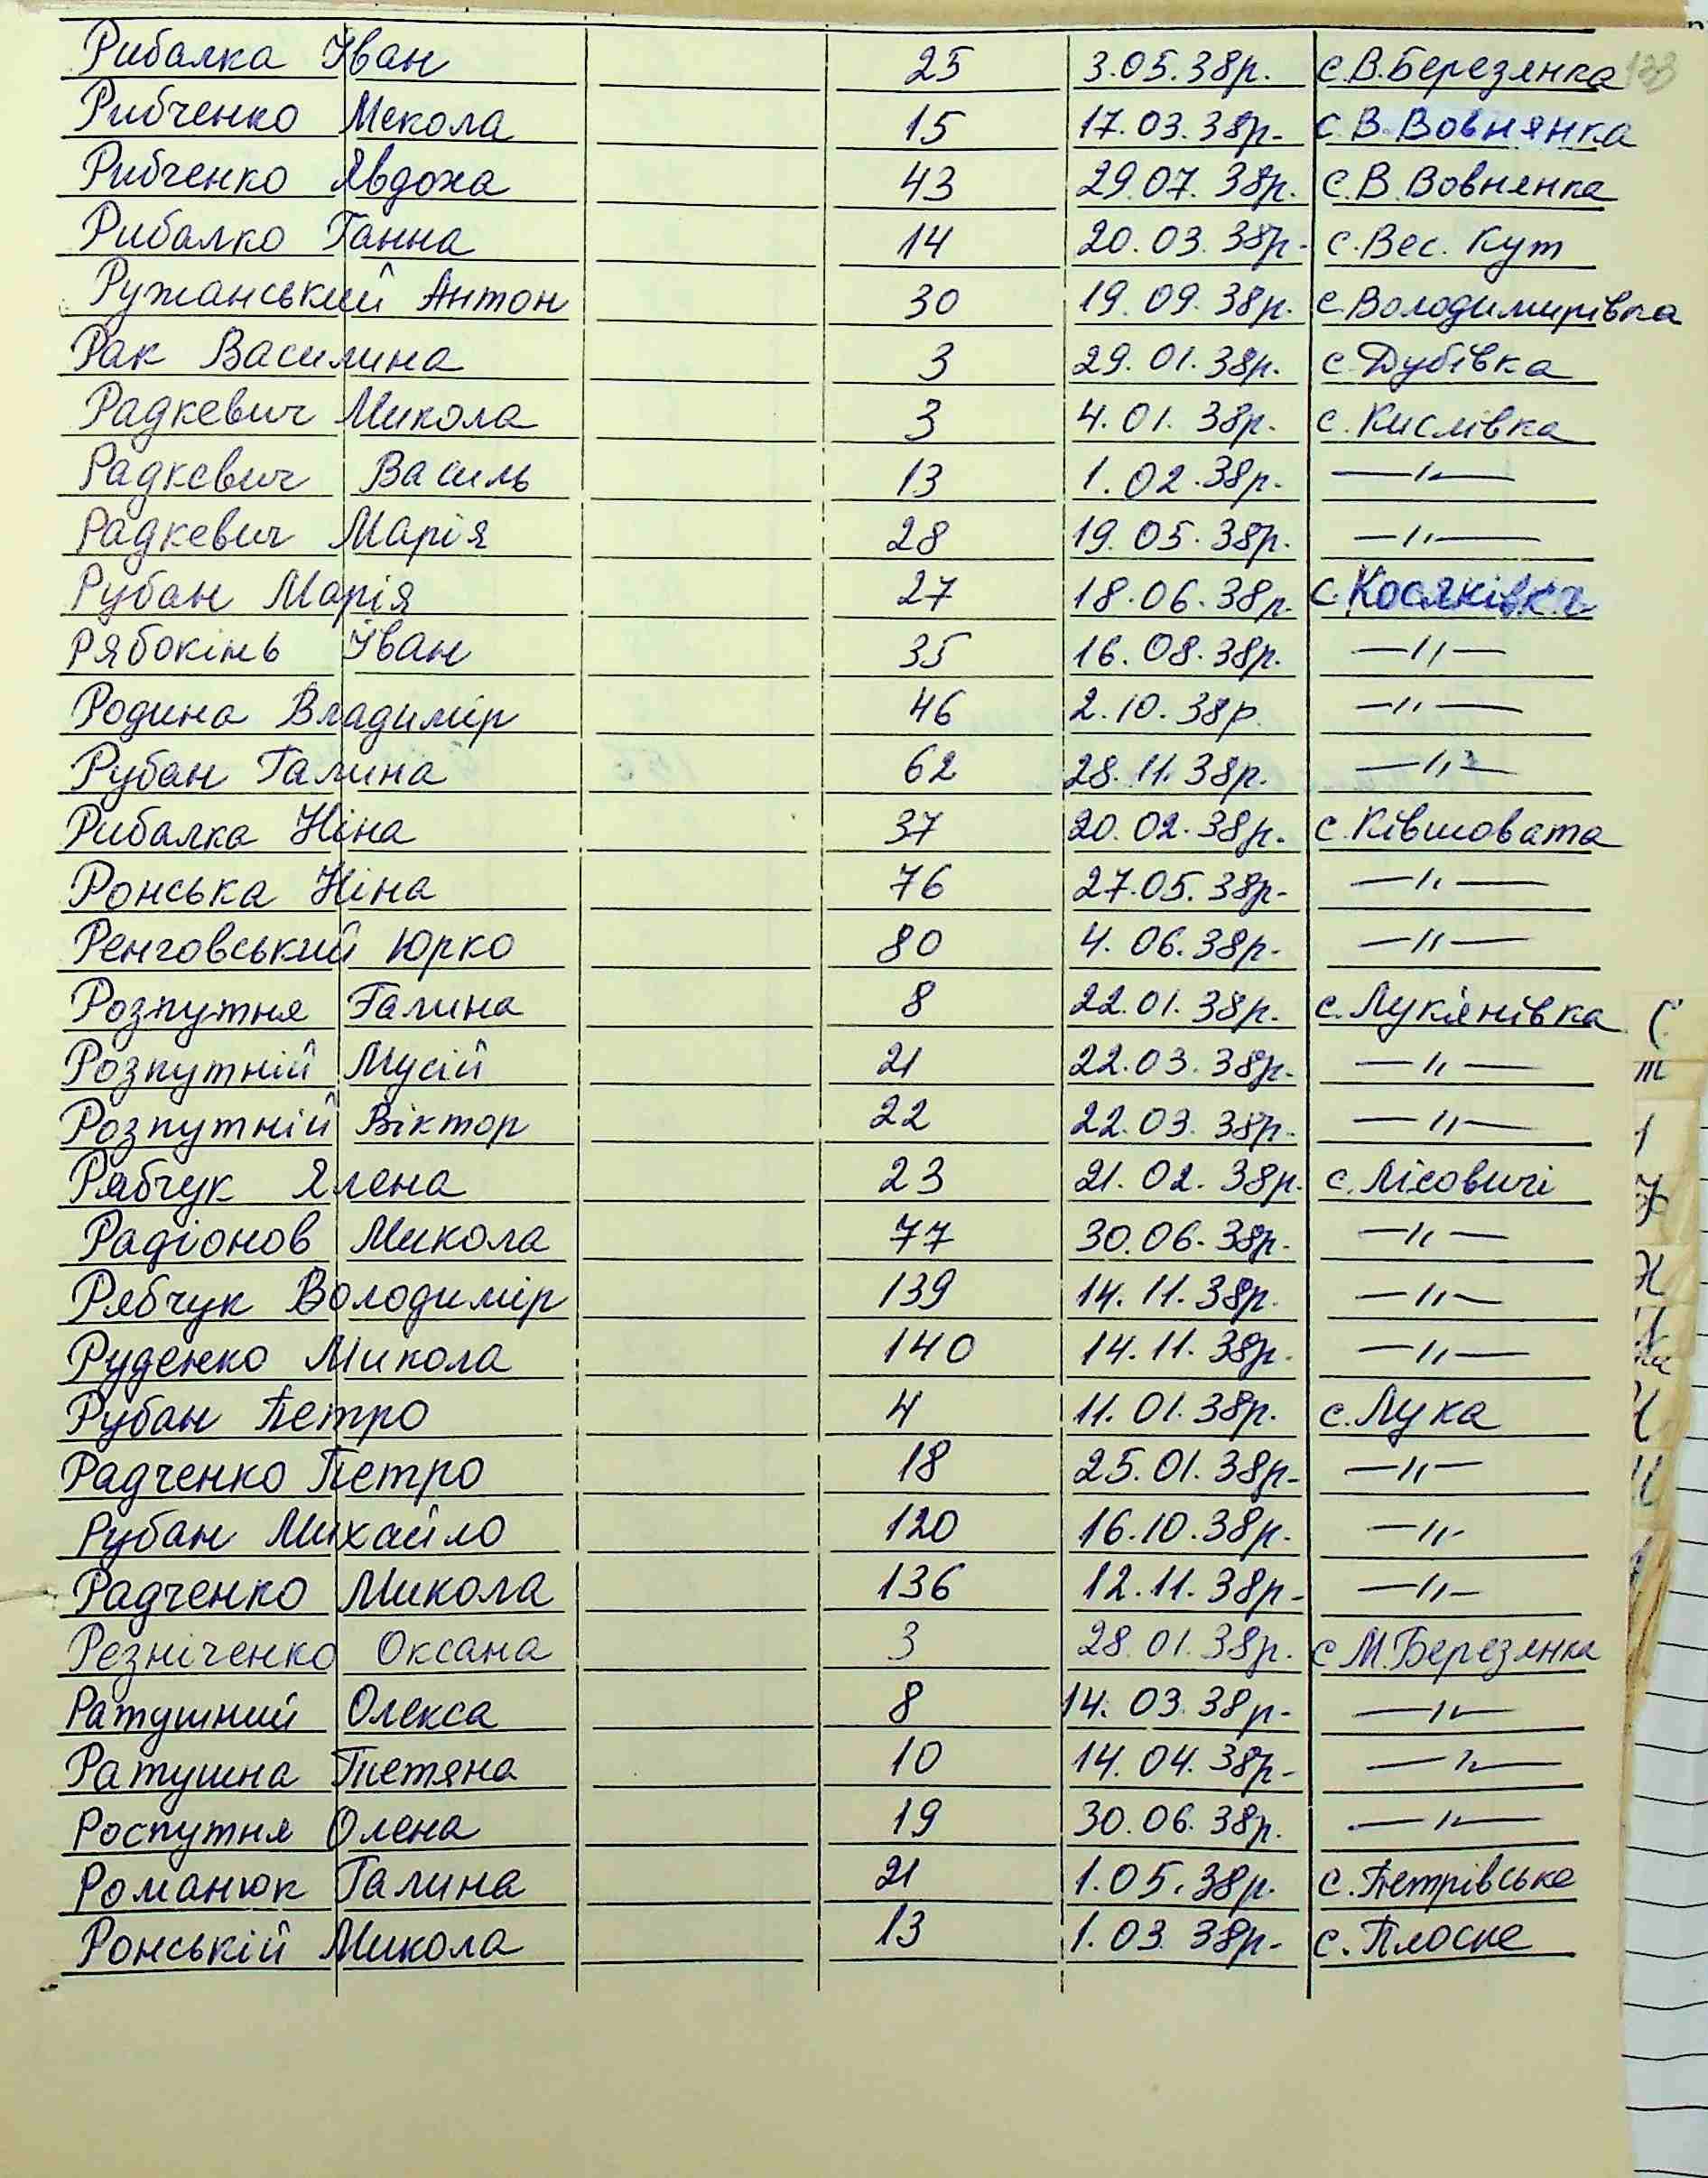 133
Рибалка Іван 25 3.05.38р. с.В.Березянка
Рибченко Мекола 15 17.03.38р. с.В.Вовнянка
Рибченко Явдоха 43 29.07.38р. с.В.Вовнянка
Рибалко Ганна 14 20.03.38р. с.Вес.Кут
Ружанський Антон 30 19.09.38р. с.Володимирівка
Рак Василина 3 29.01.38р. с.Дубівка
Радкевич Микола 3 4.01.38р. с.Кислівка
Радкевич Василь 13 1.02.38р. —"—
Радкевич Марія 28 19.05.38р. —"—
Рубан Марія 27 18.06.38р. с.Косяківка
Рябокінь Іван 35 16.08.38р. —"—
Родина Владимір 46 2.10.38р. —"—
Рубан Галина 62 28.11.38р. —"—
Рибалка Ніна 37 20.02.38р. с.Ківшовата
Ронська Ніна 76 27.05.38р. —"—
Ренговський Юрко 80 4.06.38р. —"—
Розпутня Галина 8 22.01.38р. с.Лук'янівка
Розпутній Мусій 21 22.03.38р. —"—
Розпутній Віктор 22 22.03.38р. —"—
Рябчук Ялена 23 21.02.38р. с.Лісовичі
Радіонов Микола 77 30.06.38р. —"—
Рябчук Володимір 139 14.11.38р. —"—
Руденко Микола 140 14.11.38р. —"—
Рубан Петро 4 11.01.38р. с.Лука
Радченко Петро 18 25.01.38р. —"—
Рубан Михайло 120 16.10.38р. —"—
Радченко Микола 136 12.11.38р. —"—
Резніченко Оксана 3 28.01.38р. с М.Березянка
Ратушний Олекса 8 14.03.38р. —"—
Ратушна Тетяна 10 14.04.38р. —"—
Роспутня Олена 19 30.06.38р. —"—
Романюк Галина 21 1.05.38р. с.Петрівське
Ронській Микола 13 1.03.38р. с.Плоске